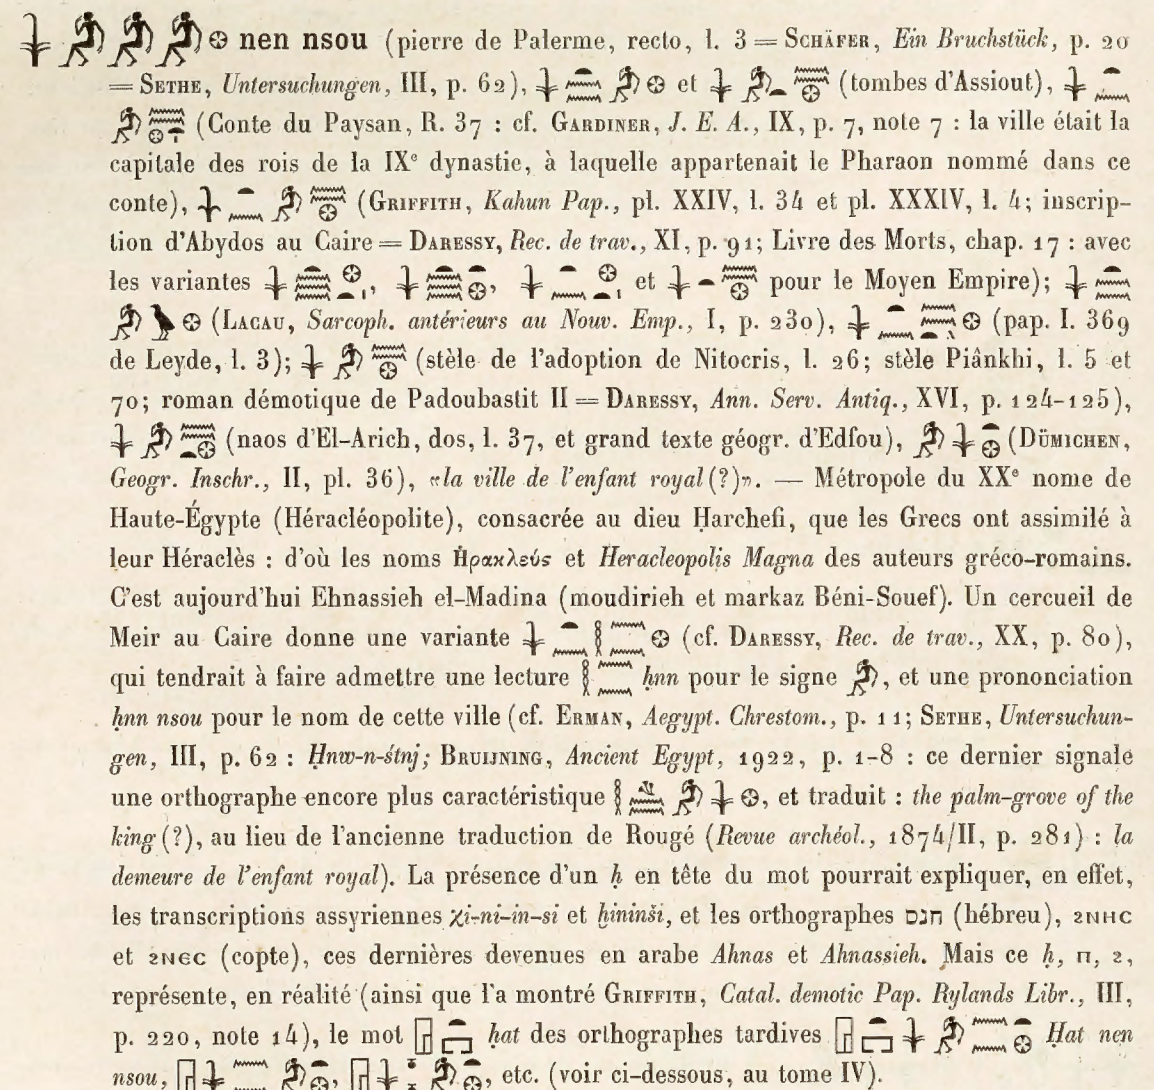 nen nsou (pierre de Palerme, recto, l. 3 = SCHÄFER, Ein Bruchstück, p. 20
= SETHE, Untersuchungen, III, p. 62), et (tombes d'Assiout),
(Conte du Paysan, R. 37 : cf. GARDINER, J. E. A., IX, p. 7, note 7 : la ville était la
capitale des rois de la IXᵉ dynastie, à laquelle appartenait le Pharaon nommé dans ce
conte), (GRIFFITH, Kahun Pap., pl. XXIV, l. 34 et pl. XXXIV, l. 4; inscrip-
tion d'Abydos au Caire = DARESSY, Rec. de trav., XI, p. 91; Livre des Morts, chap. 17 : avec
les variantes , , et pour le Moyen Empire);
(LACAU, Sarcoph. antérieurs au Nouv. Emp., I, p. 230), (pap. I. 369
de Leyde, l. 3); (stèle de l'adoption de Nitocris, l. 26; stèle Piânkhi, l. 5 et
70; roman démotique de Padoubastit II = DARESSY, Ann. Serv. Antiq., XVI, p. 124-125),
(naos d'El-Arich, dos, l. 37, et grand texte géogr. d'Edfou), (DÜMICHEN,
Geogr. Inschr., II, pl. 36), «la ville de l'enfant royal(?)». — Métropole du XXᵉ nome de
Haute-Égypte (Héracléopolite), consacrée au dieu Ḥarchefi, que les Grecs ont assimilé à
leur Héraclès : d'où les noms Ἡρακλεύς et Heracleopolis Magna des auteurs gréco-romains.
C'est aujourd'hui Ehnassieh el-Madina (moudirieh et markaz Béni-Souef). Un cercueil de
Meir au Caire donne une variante (cf. DARESSY, Rec. de trav., XX, p. 80),
qui tendrait à faire admettre une lecture ḥnn pour le signe , et une prononciation
ḥnn nsou pour le nom de cette ville (cf. ERMAN, Aegypt. Chrestom., p. 11; SETHE, Untersuchun-
gen, III, p. 62 : Ḥnw-n-śtnj; BRUIJNING, Ancient Egypt, 1922, p. 1-8 : ce dernier signale
une orthographe encore plus caractéristique , et traduit : the palm-grove of the
king(?), au lieu de l'ancienne traduction de Rougé (Revue archéol., 1874/II, p. 281) : la
demeure de l'enfant royal). La présence d'un ḥ en tête du mot pourrait expliquer, en effet,
les transcriptions assyriennes χi-ni-in-si et ḫininši, et les orthographes חנס (hébreu), ϩⲛⲏⲥ
et ϩⲛⲉⲥ (copte), ces dernières devenues en arabe Ahnas et Ahnassieh. Mais ce ḥ, ח, ϩ,
représente, en réalité (ainsi que l'a montré GRIFFITH, Catal. demotic Pap. Rylands Libr., III,
p. 220, note 14), le mot ḥat des orthographes tardives Ḥat nen
nsou, , , etc. (voir ci-dessous, au tome IV).